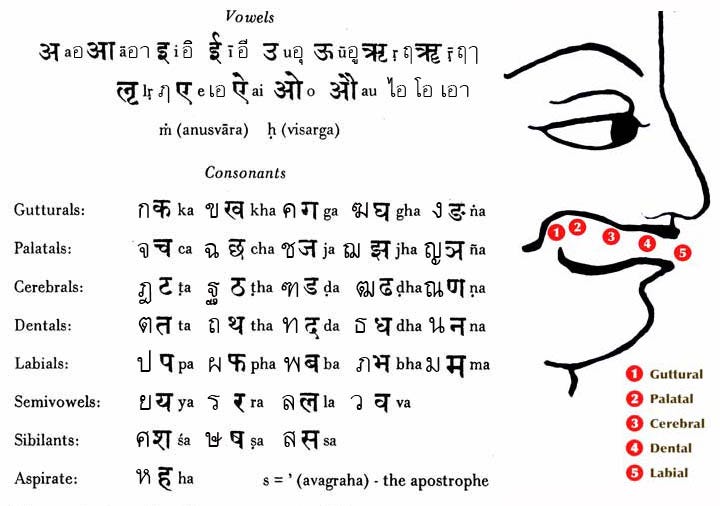 Vowels
अ a อ आ ā อา इ i อิ ई ī อี उ u อุ ऊ ū อู ऋ ṛ ฤ ॠ ṝ ฤา
लृ lṛ ฦ ए e เอ ऐ ai ओ o औ au ไอ โอ เอา
ṁ (anusvāra) ḥ (visarga)
Consonants
Gutturals: ก क ka ข ख kha ค ग ga ฆ घ gha ง ङ ṅa
Palatals: จ च ca ฉ छ cha ช ज ja ฌ झ jha ญ ञ ña
Cerebrals: ฏ ट ṭa ฐ ठ ṭha ฑ ड ḍa ฒ ढ ḍha ณ ण ṇa
Dentals: ต त ta ถ थ tha ท द da ธ ध dha น न na
Labials: ป प pa ผ फ pha พ ब ba ภ भ bha ม म ma
Semivowels: ย य ya ร र ra ล ल la ว व va
Sibilants: ศ श śa ษ ष ṣa ส स sa
Aspirate: ห ह ha s = ' (avagraha) - the apostrophe
1
2
3
4
5
1 Guttural
2 Palatal
3 Cerebral
4 Dental
5 Labial